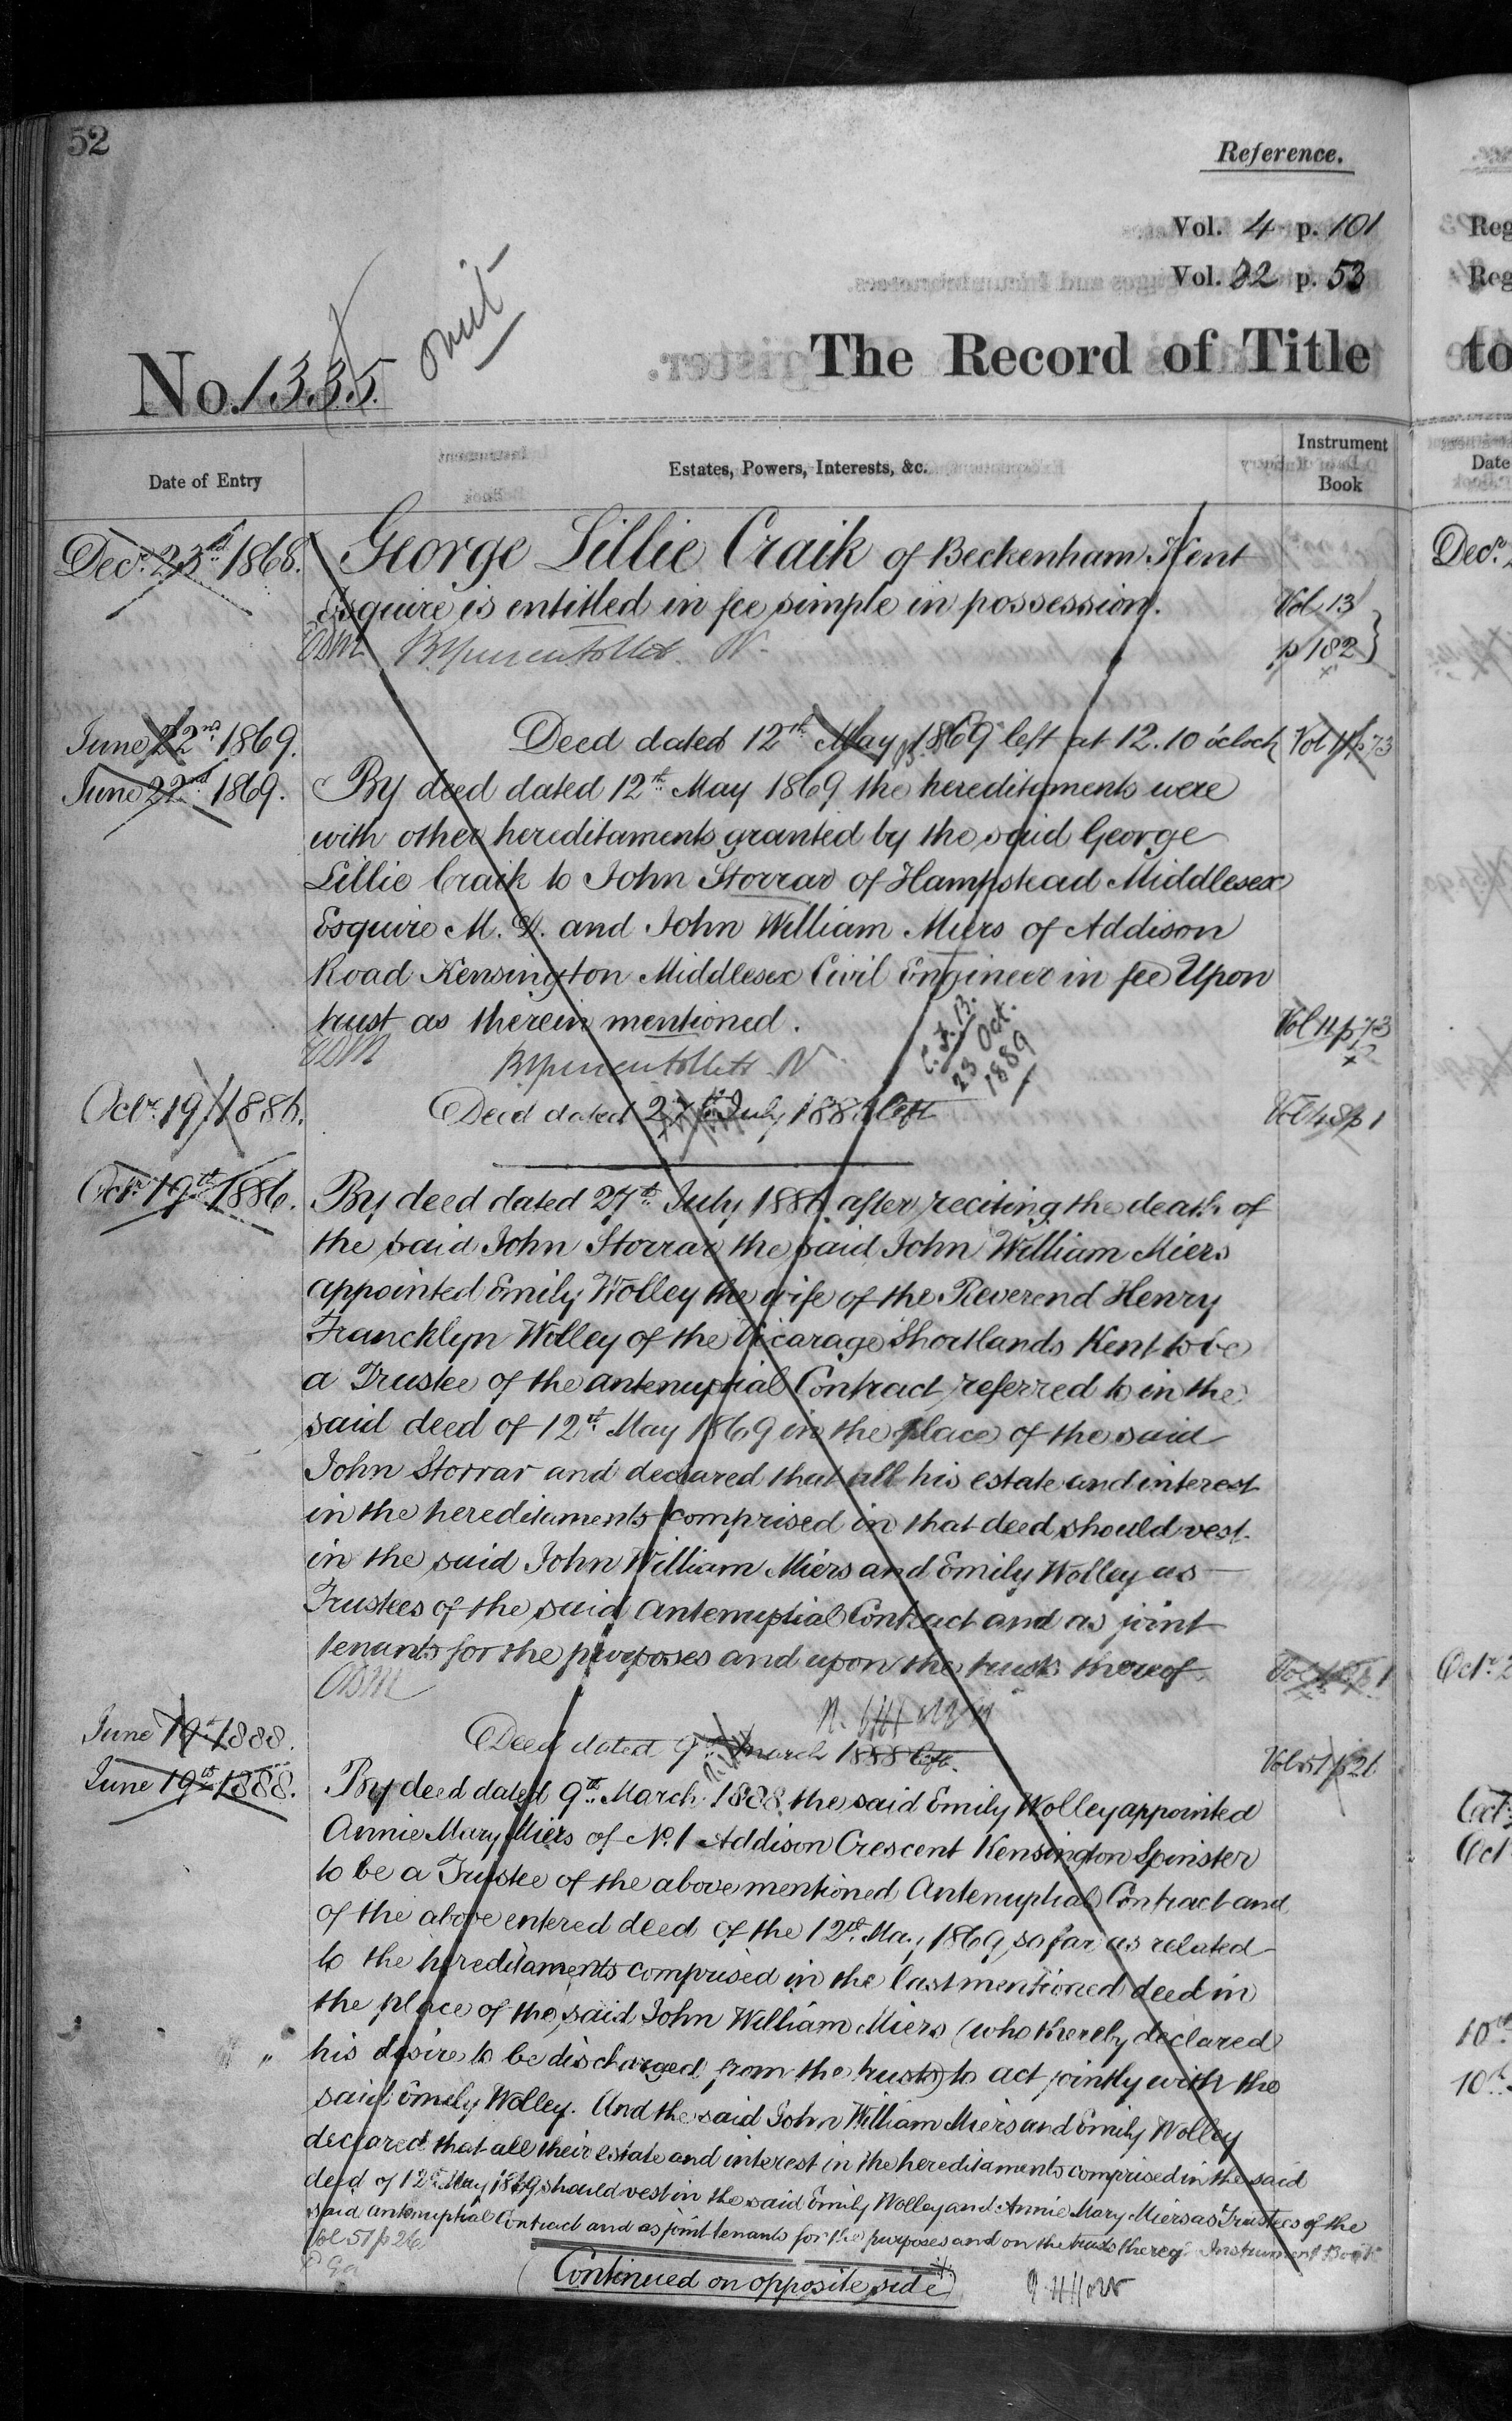 52
Reference.
Vol. 4 p. 101
Vol. 32 p. 53
omit
No. 1335.
The Record of Title
Date of Entry
Estates, Powers, Interests, &c.
Instrument Book
Decr. 23rd 1868. George Lillie Craik of Beckenham Kent
Esquire is entitled in fee simple in possession. Vol 13
p 182
June 22nd 1869. Deed dated 12th May 1869 left at 12.10 o'clock Vol 11 p 73
June 22nd 1869. By deed dated 12th May 1869 the hereditaments were
with other hereditaments granted by the said George
Lillie Craik to John Storrar of Hampstead Middlesex
Esquire M.D. and John William Miers of Addison
Road Kensington Middlesex Civil Engineer in fee Upon
trust as therein mentioned. Vol 11 p 73
23 Oct.
1889
Octr. 19 1886. Deed dated 27th July 1886 left Vol 48 p 1
Octr. 19th 1886. By deed dated 27th July 1886 after reciting the death of
the said John Storrar the said John William Miers
appointed Emily Wolley the wife of the Reverend Henry
Francklyn Wolley of the Vicarage Shortlands Kent to be
a Trustee of the antenuptial Contract referred to in the
said deed of 12th May 1869 in the place of the said
John Storrar and declared that all his estate and interest
in the hereditaments comprised in that deed should vest
in the said John William Miers and Emily Wolley as
Trustees of the said Antenuptial Contract and as joint
tenants for the purposes and upon the trusts thereof Vol 48 p 1
June 19th 1888. Deed dated 9th March 1888 left. Vol 51 p 26
June 19th 1888. By deed dated 9th March 1888 the said Emily Wolley appointed
Annie Mary Miers of No. 1 Addison Crescent Kensington Spinster
to be a Trustee of the above mentioned Antenuptial Contract and
of the above entered deed of the 12th May 1869 so far as related
to the hereditaments comprised in the last mentioned deed in
the place of the said John William Miers (who thereby declared
his desire to be discharged from the trusts) to act jointly with the
said Emily Wolley. And the said John William Miers and Emily Wolley
declared that all their estate and interest in the hereditaments comprised in the said
deed of 12th May 1869 should vest in the said Emily Wolley and Annie Mary Miers as Trustees of the
said antenuptial Contract and as joint tenants for the purposes and on the trusts thereof Instrument Book
Vol 51 p 26
(Continued on opposite side)
Reg
Reg
to
Date
Decr.
Octr. 2
Oct
Oct
10th
10th